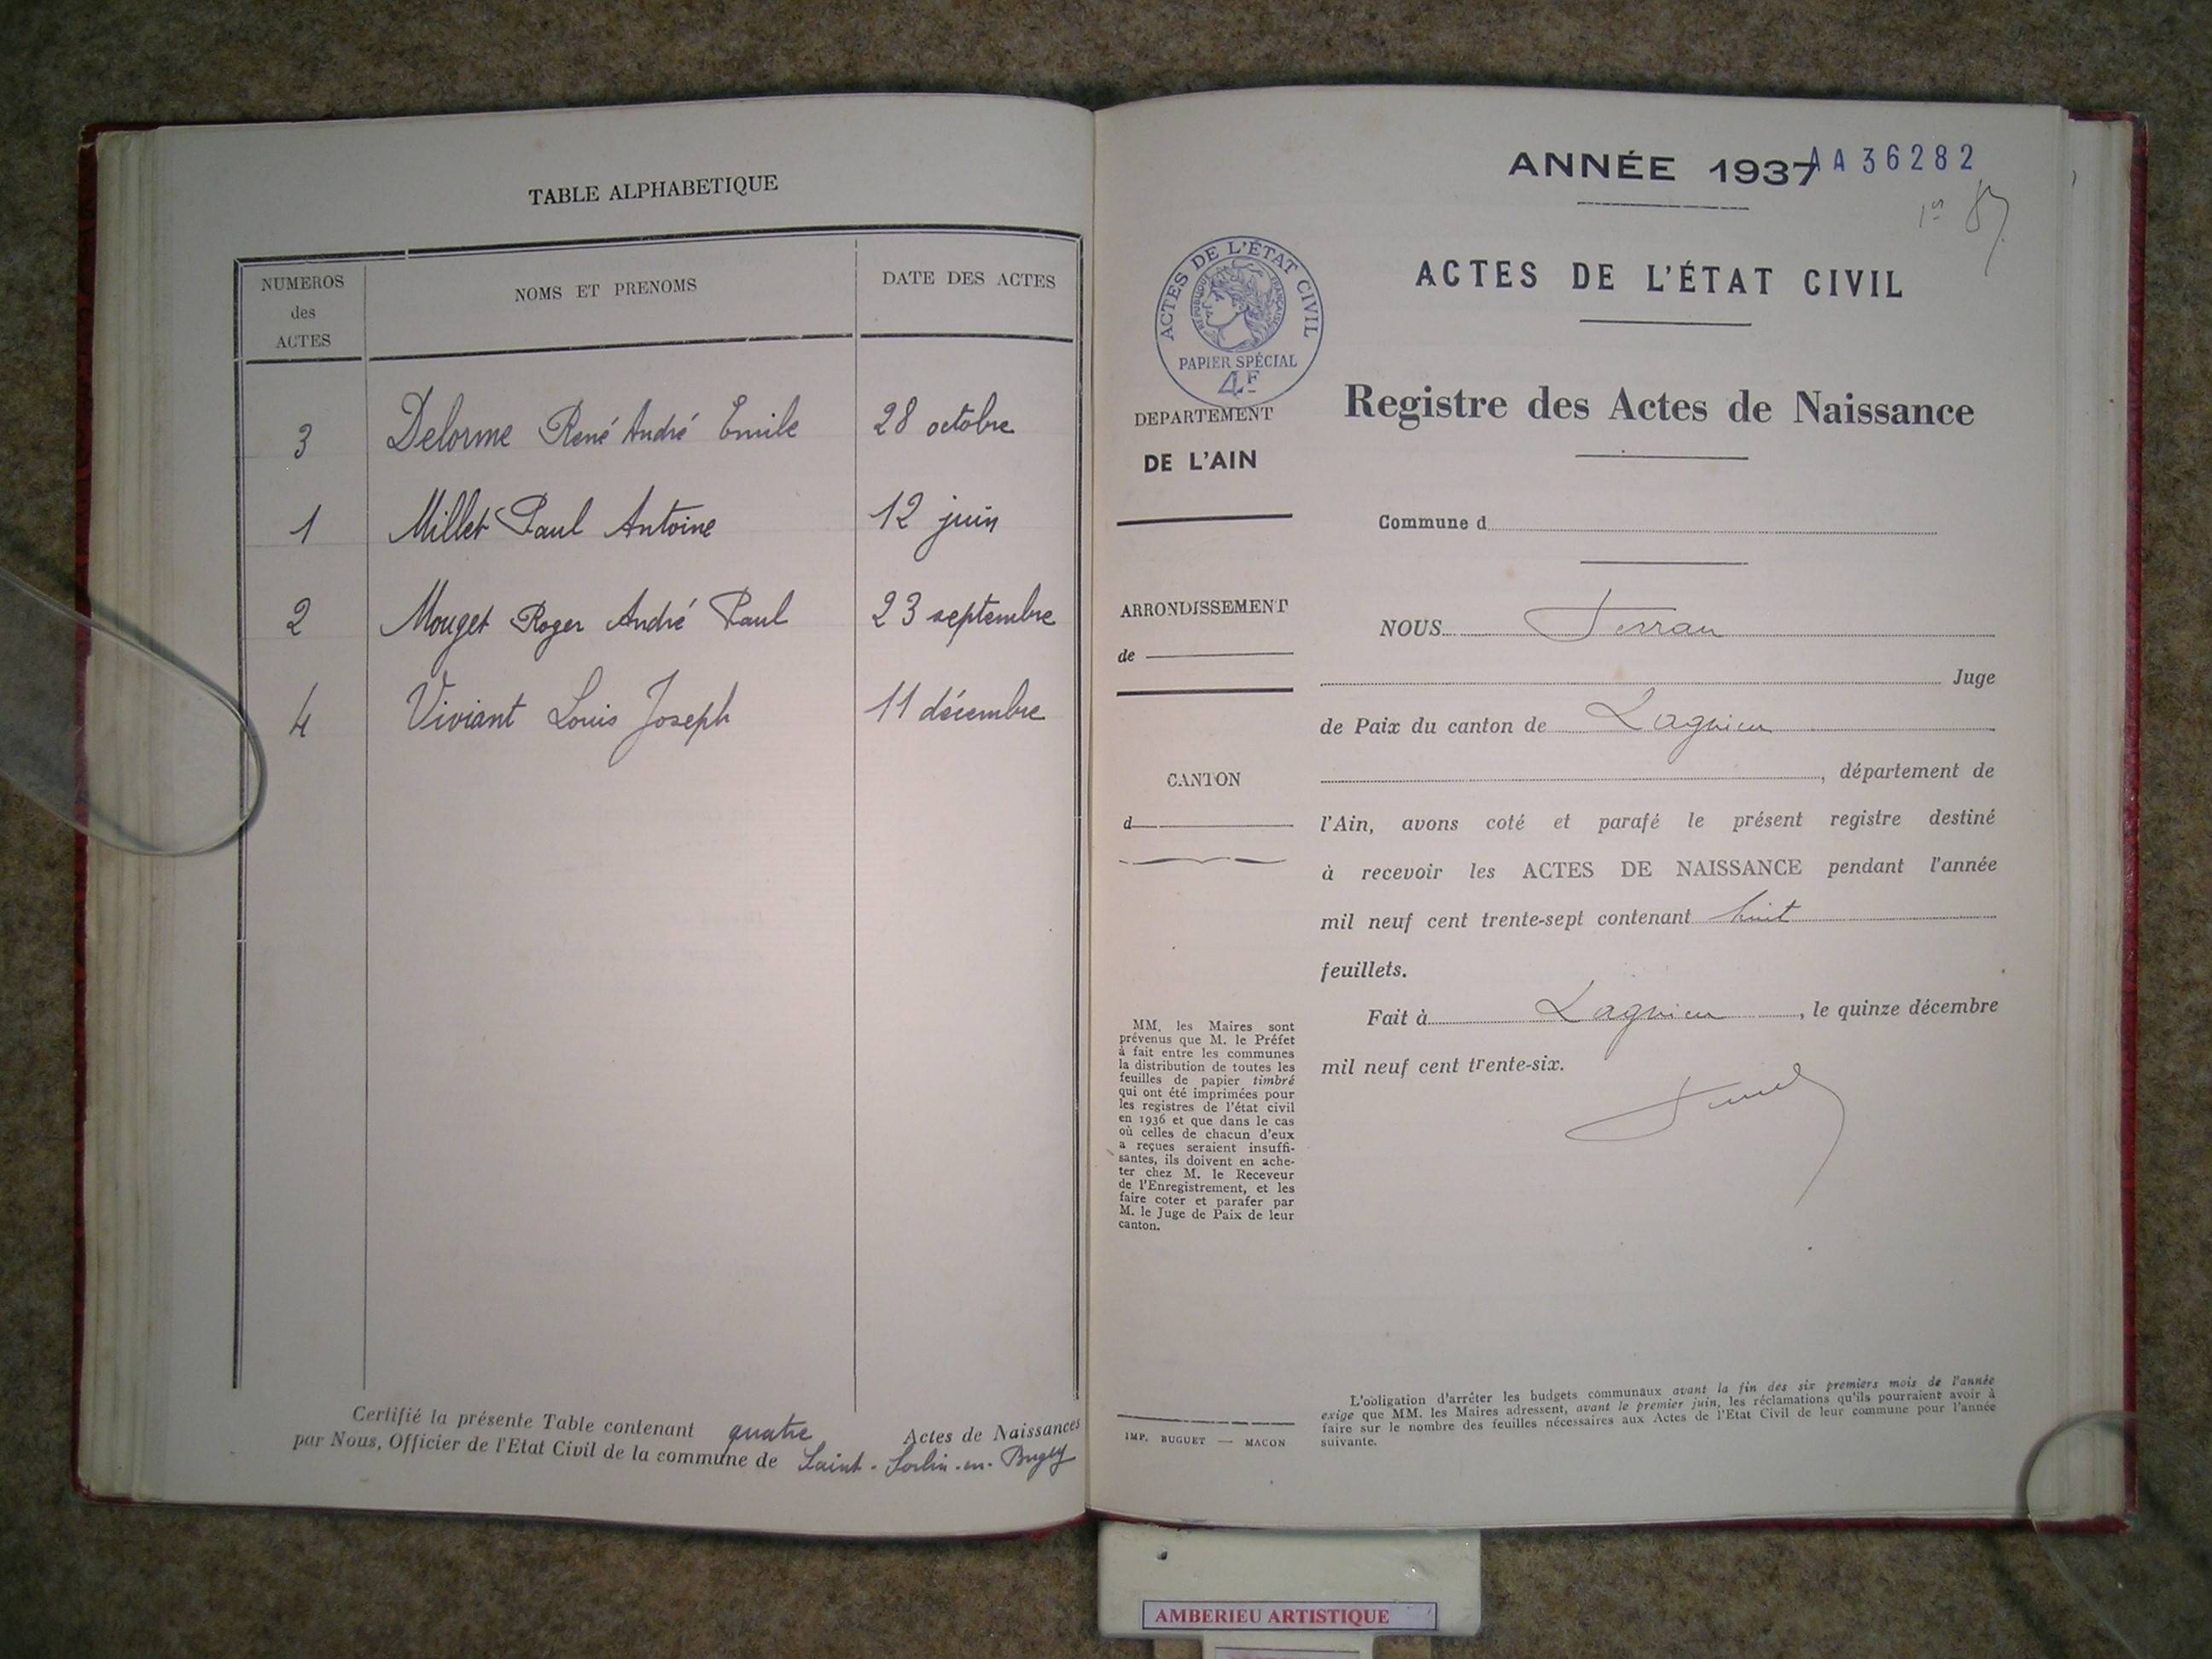 TABLE ALPHABETIQUE
NUMEROS des ACTES
NOMS ET PRENOMS
DATE DES ACTES
3 Delorme René André Emile 28 octobre
1 Millet Paul Antoine 12 juin
2 Mouget Roger André Paul 23 septembre
4 Viviant Louis Joseph 11 décembre
Certifié la présente Table contenant quatre Actes de Naissances
par Nous, Officier de l'Etat Civil de la commune de Saint-Sorlin-en-Bugey
ANNÉE 1937
AA36282
ACTES DE L'ÉTAT CIVIL
ACTES DE L'ÉTAT CIVIL
RÉPUBLIQUE FRANÇAISE
PAPIER SPÉCIAL
4F
DEPARTEMENT
DE L'AIN
ARRONDISSEMENT
de
CANTON
d
MM. les Maires sont
prévenus que M. le Préfet
à fait entre les communes
la distribution de toutes les
feuilles de papier timbré
qui ont été imprimées pour
les registres de l'état civil
en 1936 et que dans le cas
où celles de chacun d'eux
a reçues seraient insuffi-
santes, ils doivent en ache-
ter chez M. le Receveur
de l'Enregistrement, et les
faire coter et parafer par
M. le Juge de Paix de leur
canton.
IMP. BUGUET — MACON
Registre des Actes de Naissance
Commune d
NOUS
Juge
de Paix du canton de Lagnieu
, département de
l'Ain, avons coté et parafé le présent registre destiné
à recevoir les ACTES DE NAISSANCE pendant l'année
mil neuf cent trente-sept contenant huit
feuillets.
Fait à Lagnieu, le quinze décembre
mil neuf cent trente-six.
L'obligation d'arrêter les budgets communaux avant la fin des six premiers mois de l'année
exige que MM. les Maires adressent, avant le premier juin, les réclamations qu'ils pourraient avoir à
faire sur le nombre des feuilles nécessaires aux Actes de l'Etat Civil de leur commune pour l'année
suivante.
AMBERIEU ARTISTIQUE